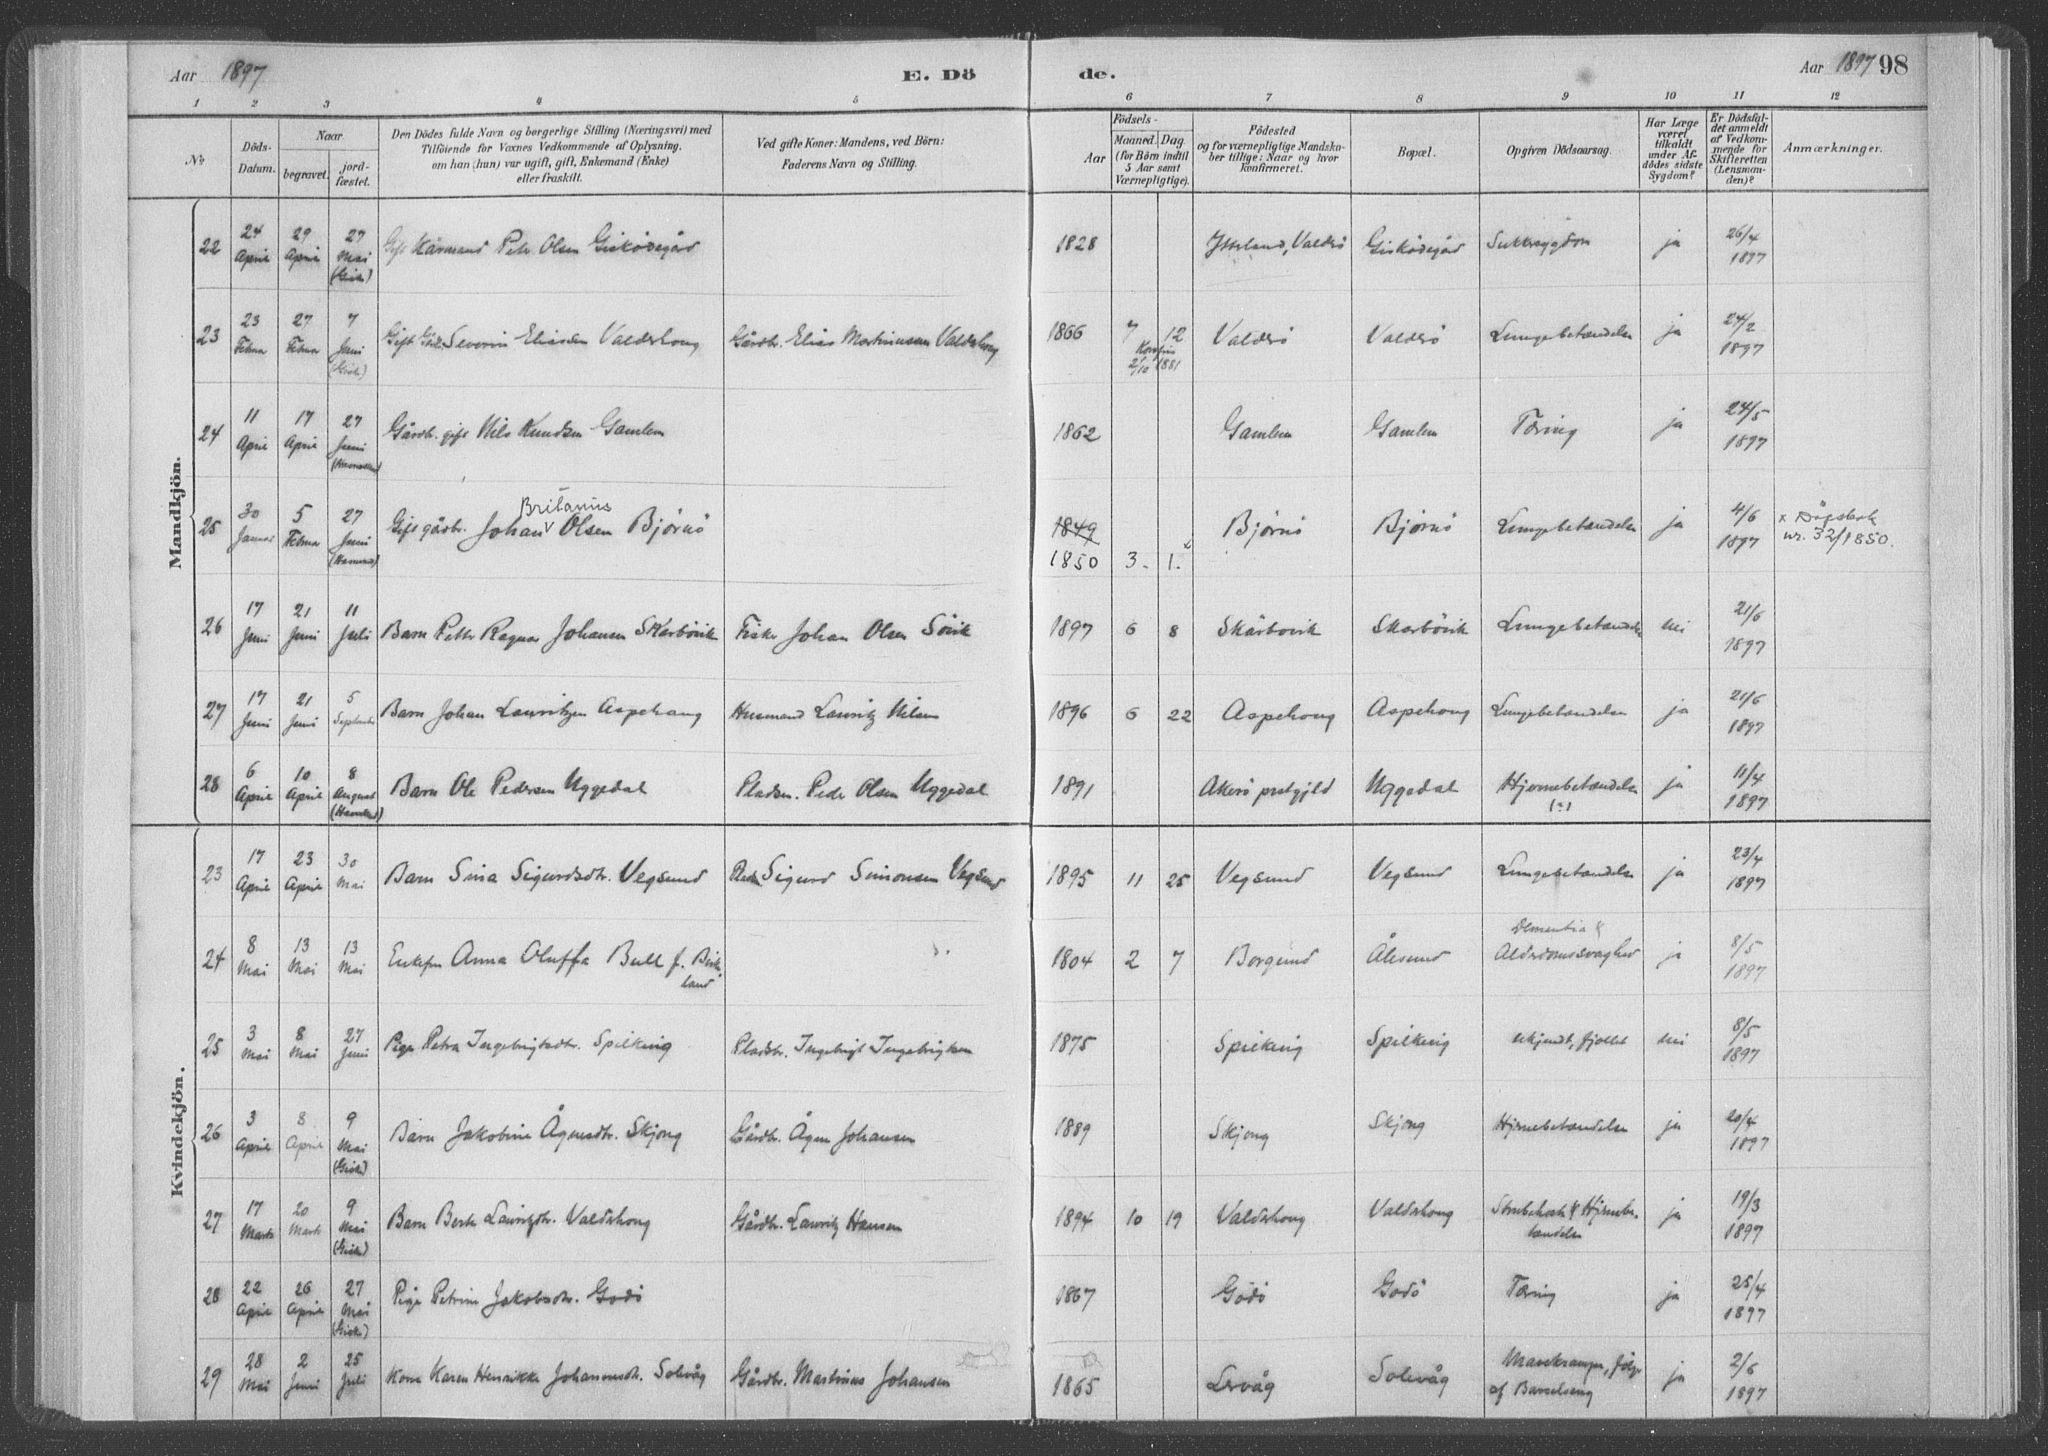 Aar 1897 E. Dö de. Aar 1897 98
1 2 3 4 5 6 7 8 9 10 11 12
No Döds-Datum. Naar begravet. jord-fæstet. Den Dödes fulde Navn og borgerlige Stilling (Næringsvei) med Tilföiende for Voxnes Vedkommende af Oplysning, om han (hun) var ugift, gift, Enkemand (Enke) eller fraskilt. Ved gifte Koner: Mandens, ved Börn: Faderens Navn og Stilling. Födsels- Aar Maaned. Dag. (for Börn indtil 5 Aar samt Værnepligtige). Födested og for værnepligtige Mandskaber tillige: Naar og hvor konfirmeret. Bopæl. Opgiven Dödsaarsag. Har Læge været tilkaldt under Afdödes sidste Sygdom? Er Dödsfaldet anmeldt af Vedkommende for Skifteretten (Lensmanden)? Anmærkninger.
Mandkjön.
22 24 April 29 April 27 Mai (Giske) Gift Kårmand Petr Olsen Gisködegård 1828 Valderö Gisködegård ja 26/4 1897
23 23 Februar 27 Februar 7 Juni (Giske) Gift Severin Eliassen Valderhong Gårdbr. Elias Martinussen Valderhong 1866 7 12 Konfirm 2/10 1881 Valderö Valderö Lungebetændelse ja 24/2 1897
24 11 April 17 April 27 Juni Gårdbr. gift Nils Knudsen Gamlem 1862 Gamlem Gamlem Tæring ja 24/5 1897
25 30 Januar 5 Februar 27 Juni Gift gårdbr. Johan Britanius Olsen Bjørnö 1849 1850 3. 1. x Bjørnö Bjørnö Lungebetændelse ja 4/6 1897 x Dåpsbok nr. 32/1850.
26 17 Juni 21 Juni 11 Juli Barn Petter Ragnar Johansen Skarbövik Fisker Johan Olsen Sövik 1897 6 8 Skarbövik Skarbövik Lungebetændelse nei 21/6 1897
27 17 Juni 21 Juni 5 September Barn Johan Lauritzen Aspehaug Husmand Lauritz Nilsen 1896 6 22 Aspehaug Aspehaug Lungebetændelse ja 21/6 1897
28 6 April 10 April 8 August Barn Ole Pedersen Uggedal Pladsm. Peder Olsen Uggedal 1891 Akerö prstgjld Uggedal Hjernebetændelse (?) ja 11/4 1897
Kvindekjön.
23 17 April 23 April 30 Mai Barn Sina Sigurdsdtr. Vegsund Pladsm Sigurd Simonsen Vegsund 1895 11 25 Vegsund Vegsund Lungebetændelse ja 23/4 1897
24 8 Mai 13 Mai 13 Mai Enkefru Anna Oluffa Bull f. Birkeland 1804 2 7 Borgund Ålesund Dementia & Alderdomssvaghed ja 8/5 1897
25 3 Mai 8 Mai 27 Juni Pige Petra Ingebrigtsdtr. Spilking Pladsbr. Ingebrigt Ingebrigtsen 1875 Spilking Spilking ukjendt, fjollet nei 8/5 1897
26 3 April 8 April 9 Mai (Giske) Barn Jakobine Ågesdtr. Skjong Gårdbr. Ågen Johansen 1889 Skjong Skjong Hjernebetændelse ja 20/4 1897
27 17 Marts 20 Marts 9 Mai (Giske) Barn Berte Lauritzdtr. Valderhong Gårdbr. Lauritz Hansen 1894 10 19 Valderhong Valderhong Strubehoste & Hjernebetændelse ja 19/3 1897
28 22 April 26 April 27 Mai (Giske) Pige Petrine Jakobsdtr. Godö 1867 Godö Godö Tæring ja 25/4 1897
29 28 Mai 2 Juni 25 Juli Kone Karen Henrikke Johannesdtr. Solevåg Gårdbr. Martinus Johansen 1865 Lervåg Solevåg Mavekramper, følge af Barselseng ja 2/6 1897